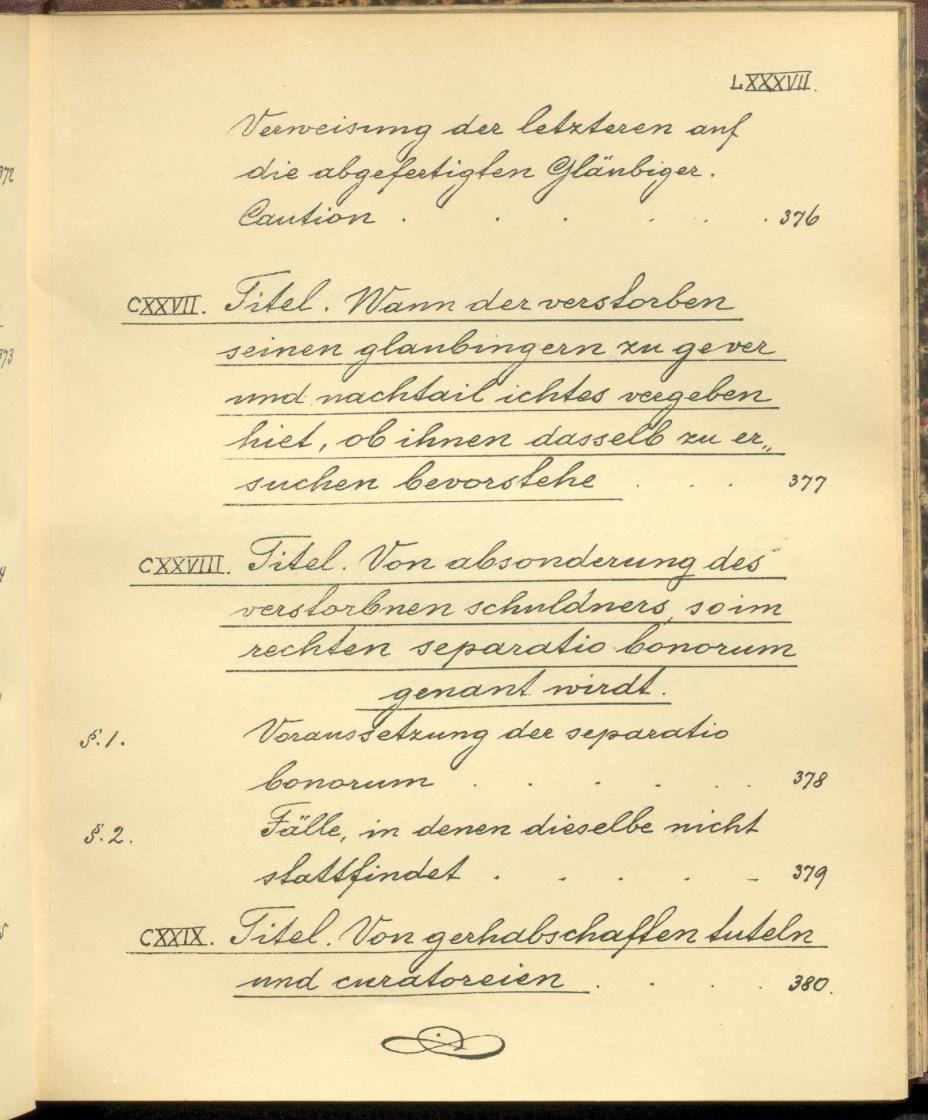 LXXXVII.
Verweisung der letzteren auf
die abgefertigten Gläubiger.
Caution . . . . . . 376
CXXVII. Titel. Wann der verstorben
seinen glaubingern zu gever
und nachtail ichtes vergeben
hiet, ob ihnen dasselb zu er„
suchen bevorstehe . . . 377
CXXVIII. Titel. Von absonderung des
verstorbnen schuldners, so im
rechten separatio bonorum
genant wirdt.
§. 1. Voraussetzung der separatio
bonorum . . . . . . 378
§. 2. Fälle, in denen dieselbe nicht
stattfindet . . . . . 379
CXXIX. Titel. Von gerhabschaften tuteln
und curatoreien . . . . 380.